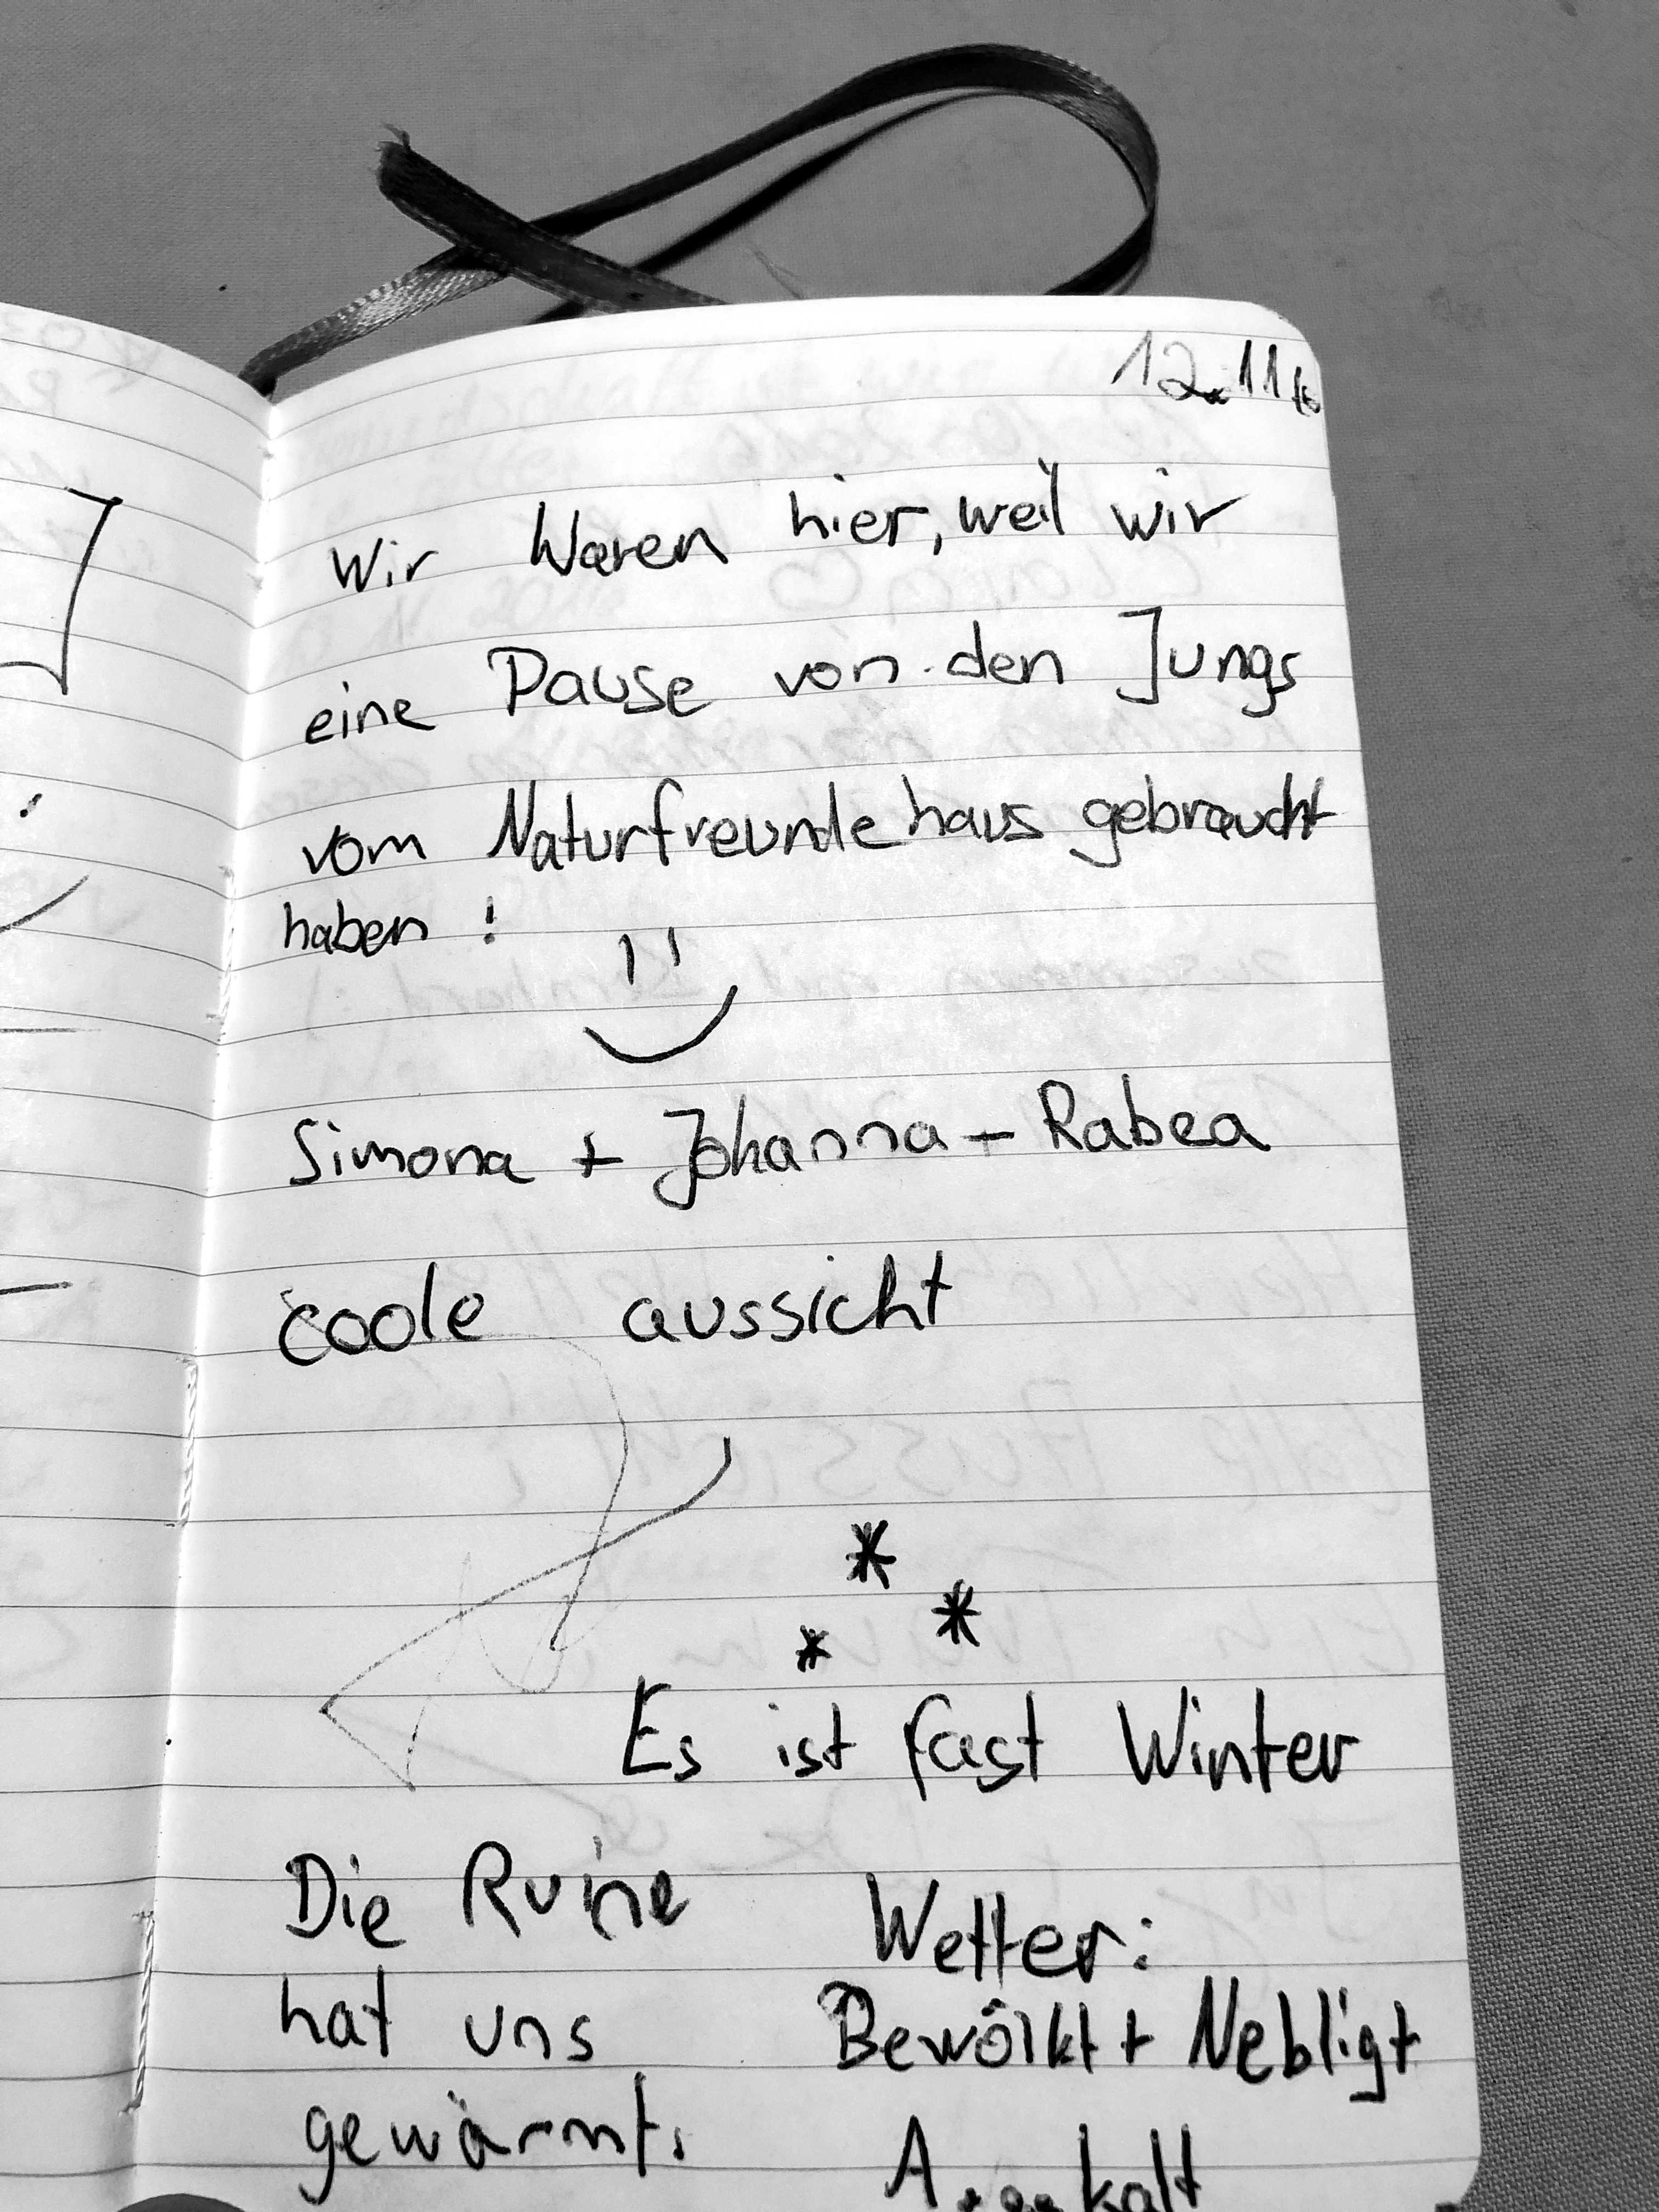 12.11.16
Wir Waren hier, weil wir
eine Pause von den Jungs
vom Naturfreundehaus gebraucht
haben !
Simona + Johanna + Rabea
coole aussicht
Es ist fast Winter
Die Ruine
hat uns
gewärmt.
Wetter:
Bewölkt + Nebligt
kalt